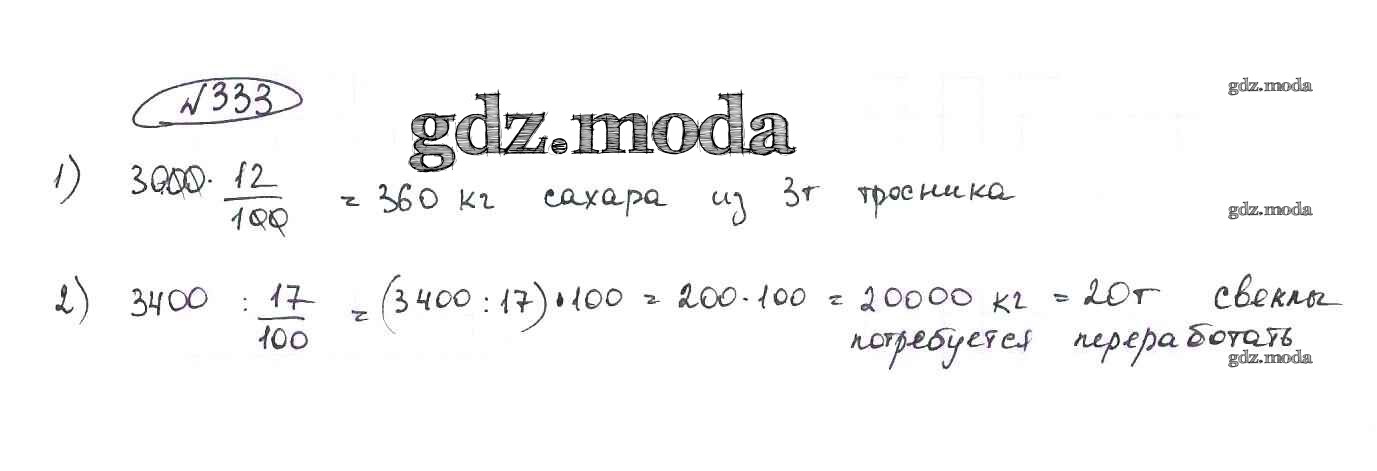 №333
gdz.moda
gdz.moda
1) 3000 · 12/100 = 360 кг сахара из 3т тросника
gdz.moda
2) 3400 : 17/100 = (3400 : 17) · 100 = 200 · 100 = 20000 кг = 20т свеклы
потребуется переработать
gdz.moda